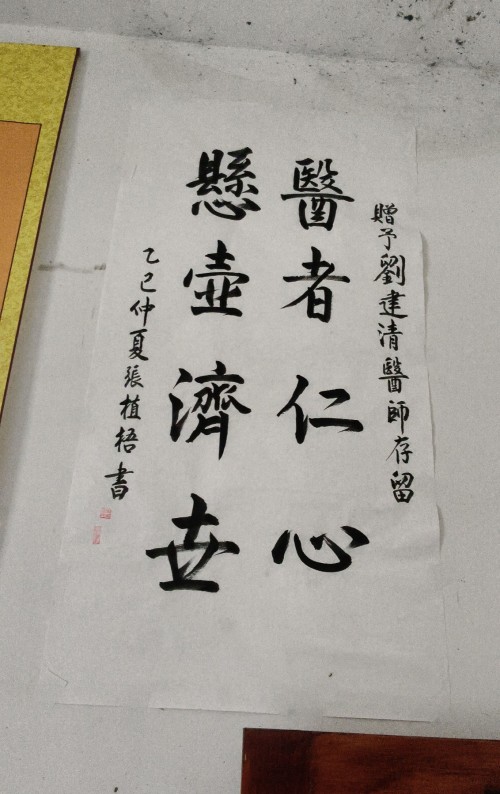 贈予劉建清醫師存留
醫者仁心
懸壺濟世
乙巳仲夏張植梧書